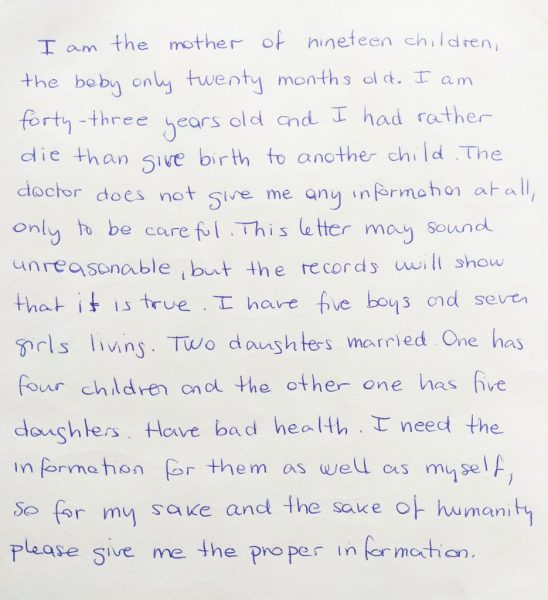 I am the mother of nineteen children,
the beby only twenty months old. I am
forty-three years old and I had rather
die than give birth to another child. The
doctor does not give me any information at all,
only to be careful. This letter may sound
unreasonable, but the records will show
that it is true. I have five boys and seven
girls living. Two daughters married. One has
four children and the other one has five
daughters. Have bad health. I need the
information for them as well as myself,
so for my sake and the sake of humanity
please give me the proper information.